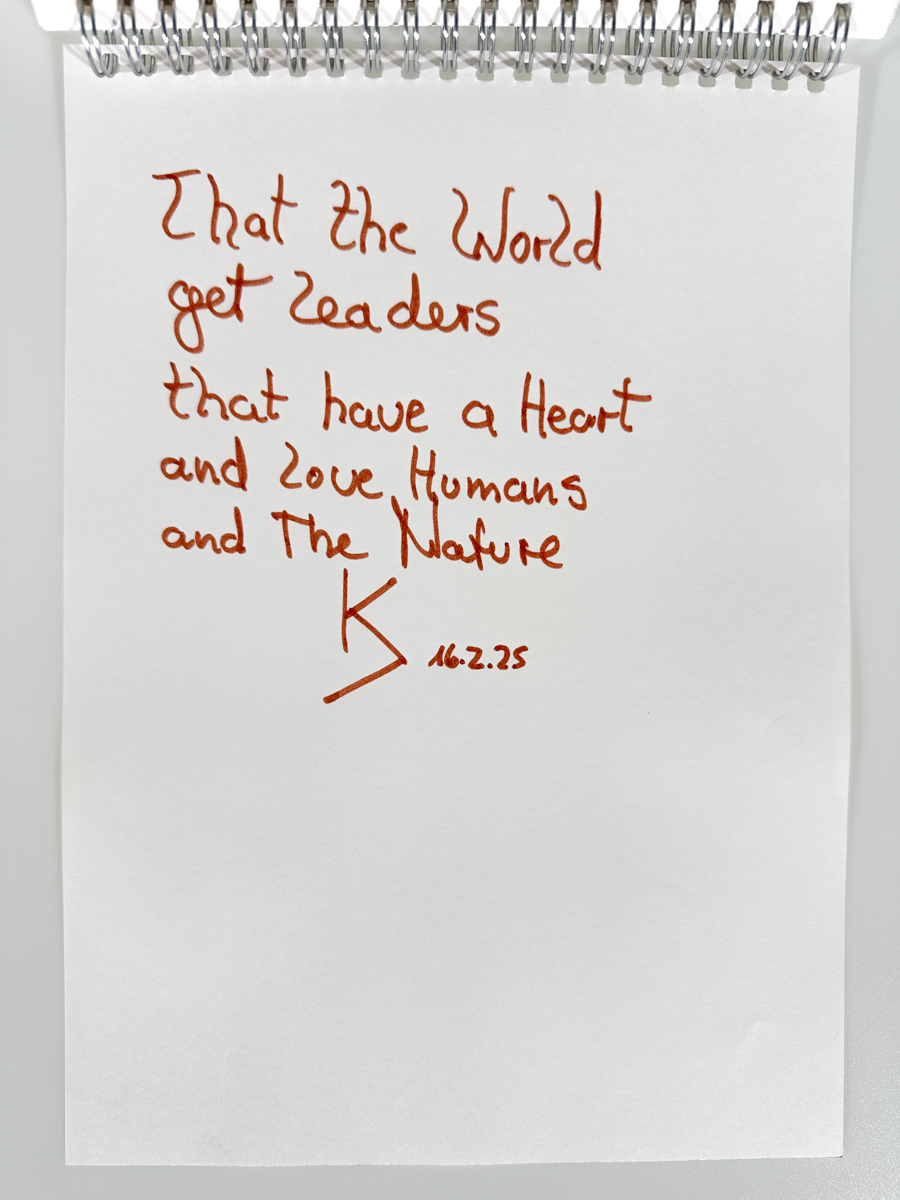 That the World
get Leaders
that have a Heart
and Love Humans
and The Nature
K
16.2.25